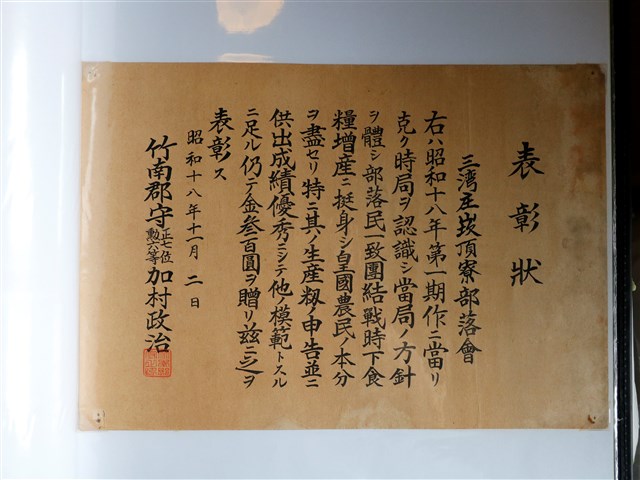 表彰狀
三湾庄崁頂寮部落會
右ハ昭和十八年第一期作ニ當リ
克ク時局ヲ認識シ當局ノ方針
ヲ體シ部落民一致團結戰時下食
糧增産ニ挺身シ皇國農民ノ本分
ヲ盡セリ特ニ其ノ生産籾ノ申告並ニ
供出成績優秀ニシテ他ノ模範トスル
ニ足ル仍テ金叁百圓ヲ贈リ茲ニ之ヲ
表彰ス
昭和十八年十一月二日
竹南郡守正七位勲六等加村政治